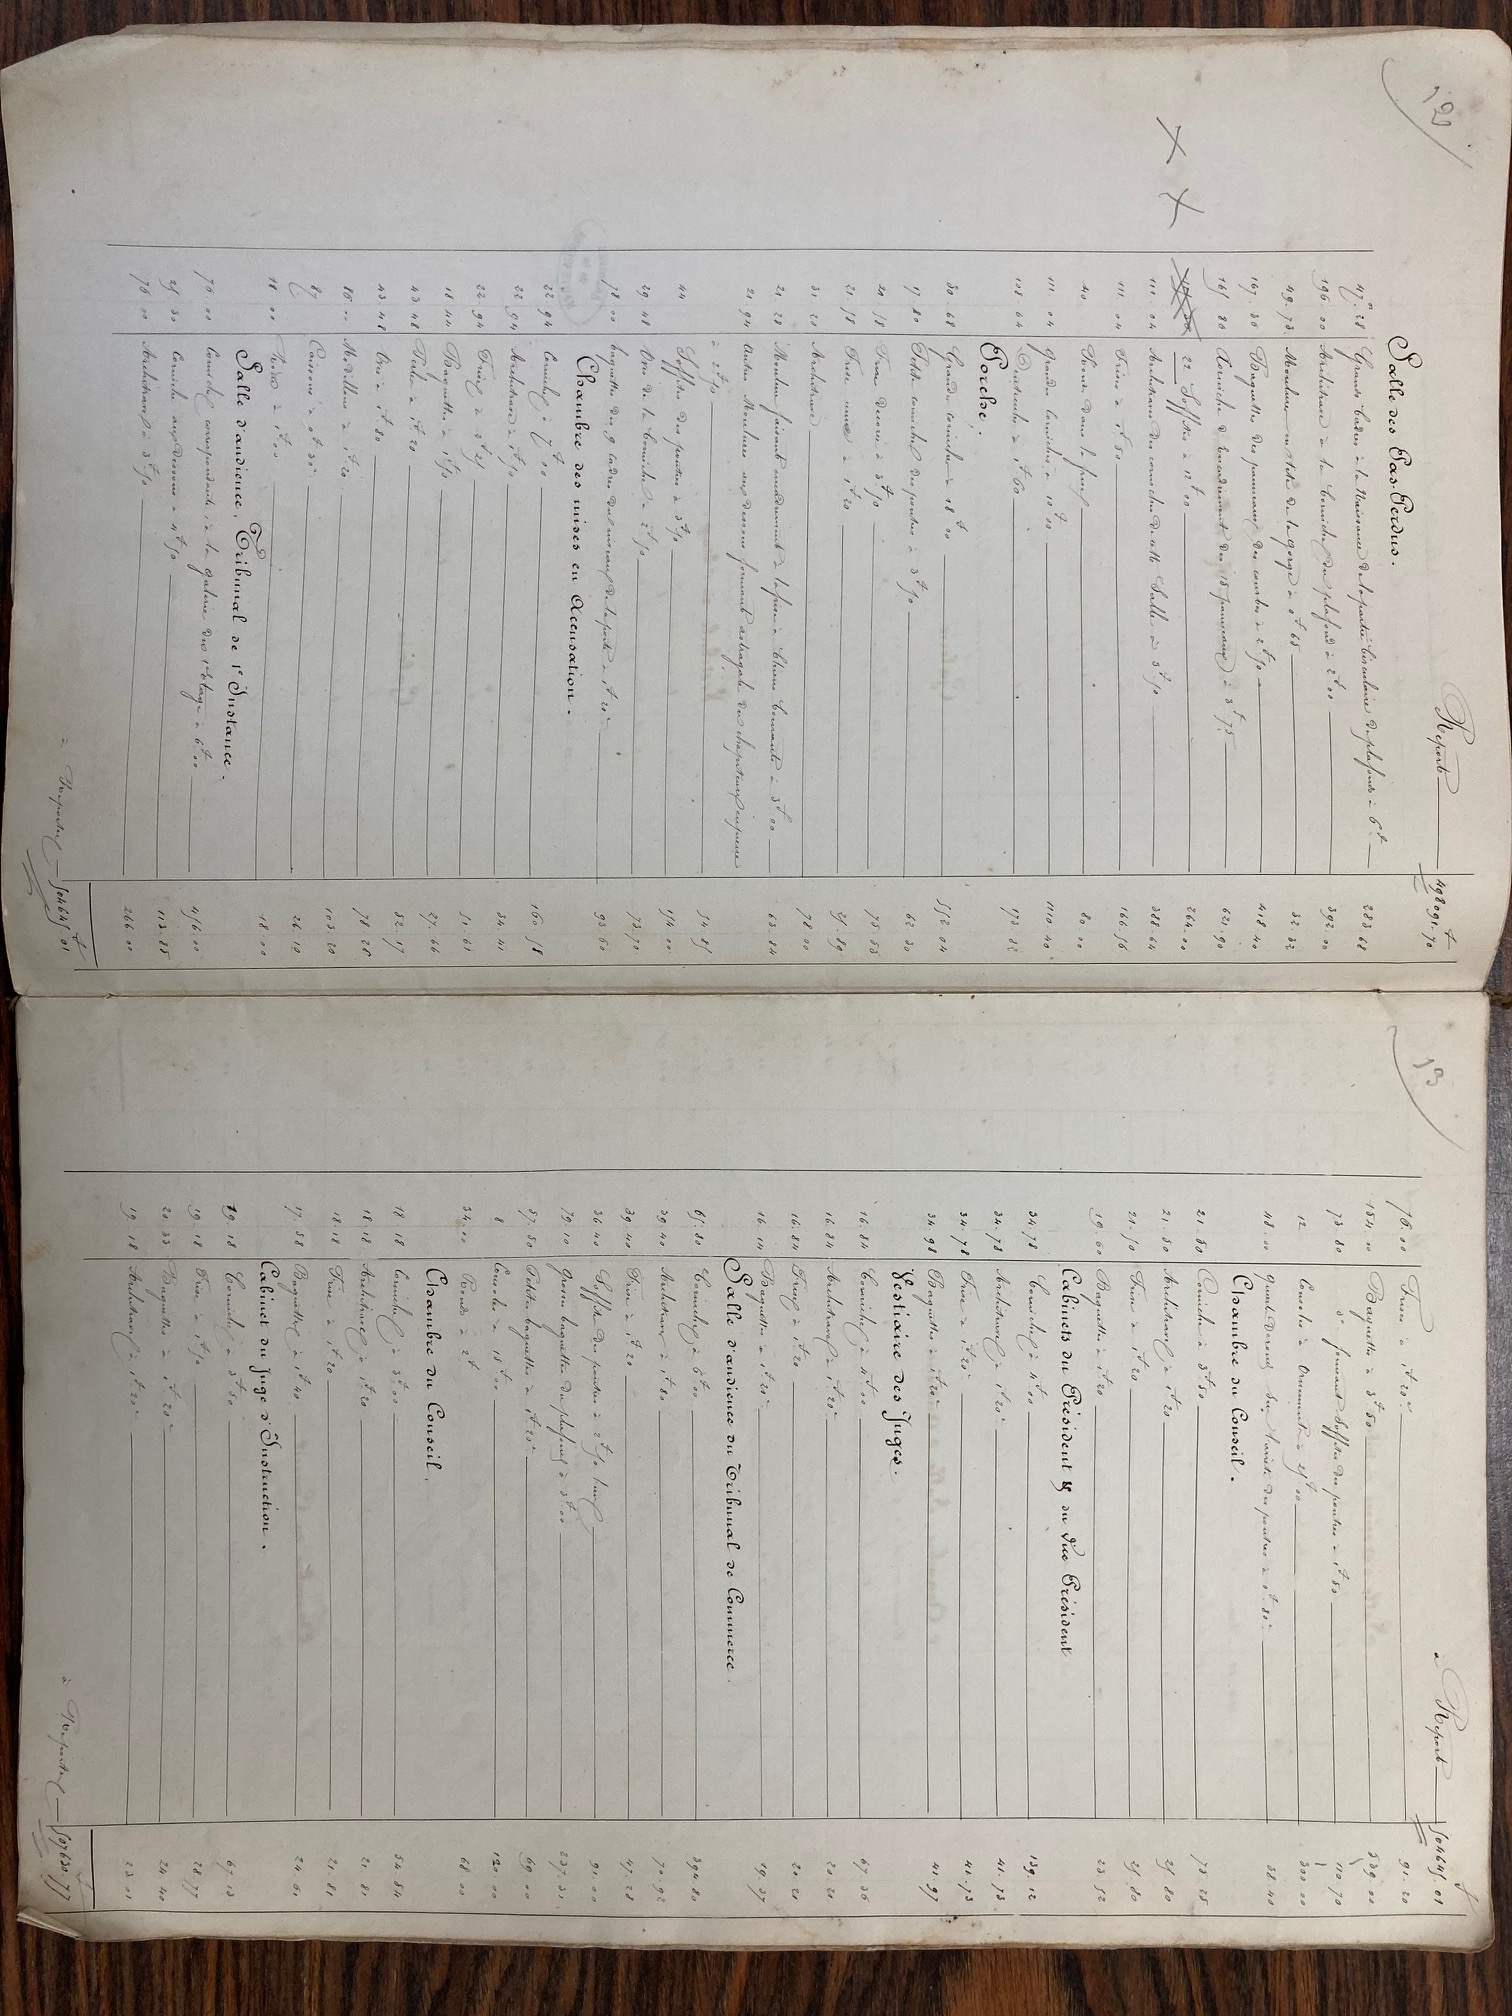 12
Report — 498091.70
Salle des Pas-Perdus.
47.28 Grands Cadres à la Naissance de la partie Circulaire du plafond à 6f — 283.68
196.00 Architrave à la Corniche du plafond à 2f00 — 392.00
49.73 Moulure en tête de la gorge à 0f65 — 32.32
167.36 Baguettes des panneaux des courbes à 2f50 — 418.40
165.80 Corniche d'encadrement des 18 panneaux à 3f75 — 621.90
22 Soffites à 12f00 — 264.00
111.04 Architrave des corniches de cette Salle à 3f50 — 388.64
111.04 Frise à 1f50 — 166.56
40 Ronds dans la frise — 80.00
111.04 Grande Corniche à 10f00 — 1110.40
108.64 à 1f60 — 173.82
Porche.
30.68 Grande Corniche à 18f00 — 552.04
17.80 Petite corniche des portes à 3f50 — 62.30
21.58 Frise décorée à 3f50 — 75.53
21.58 Frise unie à 1f20 — 25.89
31.20 Architrave — 78.00
21.28 Moulure faisant couronnement à la frise à Chiens Courants à 3f00 — 63.84
21.94 Autres Moulures au dessous formant astragale des chapiteaux en pierre
à 2f50 — 54.85
44 Soffites des portes à 3f50 — 154.00
29.48 de la Corniche à 2f50 — 73.70
78.00 baguettes des 9 cadres au dessus de la porte à 1f20c — 93.60
Chambre des mises en Accusation.
22.94 Corniche à 7f00 — 160.58
22.94 Architrave à 1f50 — 34.41
22.94 Frise à 2f25 — 51.61
18.44 Baguettes à 1f50 — 27.66
43.48 à 1f20 — 52.17
43.48 à 1f80 — 78.26
86.00 Modillons à 1f20 — 103.20
87 Caissons à 0f30 — 26.10
18.00 à 1f00 — 18.00
Salle d'audience, Tribunal de 1re Instance.
76.00 Corniche correspondante à la galerie du 1er Etage à 6f00 — 456.00
25.30 Corniche au dessous à 4f50 — 113.85
76.00 Architrave à 3f50 — 266.00
à Reporter — 504645.01
13
Report — 504645.01
76.00 Frise à 1f20c — 91.20
154.00 Baguettes à 3f50 — 539.00
73.80 do formant Soffites des portes à 1f50 — 110.70
12 Consoles à Ornement à 25f00 — 300.00
48.00 Quart de rond sur l'arrête des portes à 0f80c — 38.40
Chambre du Conseil.
21.50 Corniche à 3f50 — 75.25
21.50 Architrave à 1f20 — 25.80
21.50 Frise à 1f20 — 25.80
19.60 Baguettes à 1f20 — 23.52
Cabinets du Président & du Vice Président
34.78 Corniche à 4f00 — 139.12
34.78 Architrave à 1f20c — 41.73
34.78 Frise à 1f20c — 41.73
34.98 Baguettes à 1f20c — 41.97
Vestiaire des Juges.
16.84 Corniche à 4f00 — 67.36
16.84 Architrave à 1f20c — 20.20
16.84 Frise à 1f20 — 20.20
16.14 Baguettes à 1f20c — 19.37
Salle d'audience du Tribunal de Commerce.
65.80 Corniche à 6f00 — 394.80
39.40 Architrave à 1f80 — 70.92
39.40 Frise à 1f20 — 47.28
36.40 Soffite des portes à 2f50 — 91.00
79.10 Grosse baguette du plafond à 3f00 — 237.30
57.50 Petites baguettes à 1f20c — 69.00
8 Consoles à 15f00 — 120.00
34.00 Ronds à 2f — 68.00
Chambre du Conseil.
18.18 Corniche à 3f00 — 54.54
18.18 Architrave à 1f20 — 21.81
18.18 Frise à 1f20 — 21.81
17.58 Baguettes à 1f40 — 24.61
Cabinet du Juge d'Instruction.
19.18 Corniche à 3f50 — 67.13
19.18 Frise à 1f50 — 28.77
20.33 Baguettes à 1f20c — 24.40
19.18 Architrave à 1f20c — 23.01
à Reporter — 507630.77